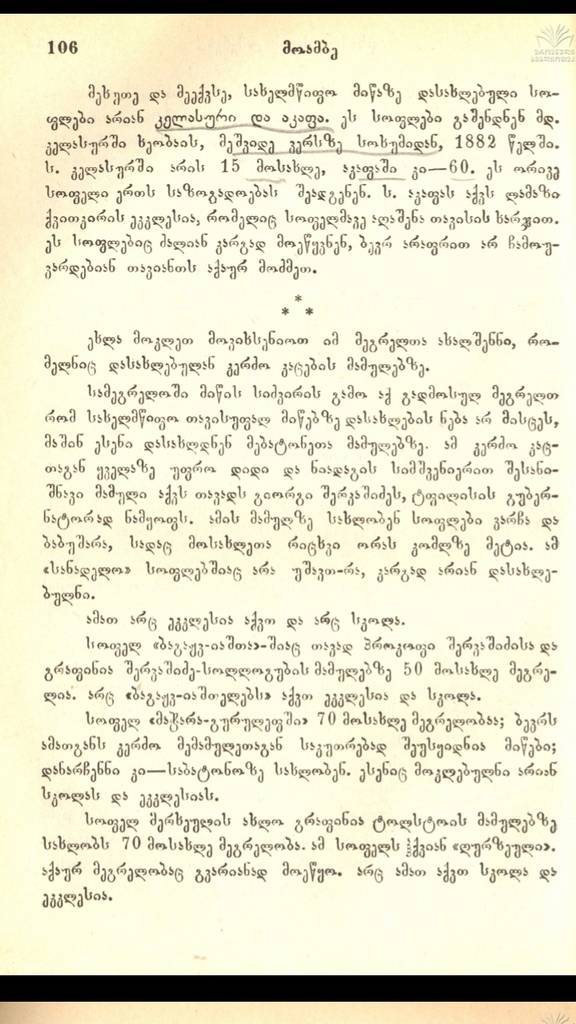 106 მოამბე
მეხუთე და მეექვსე, სახელმწიფო მიწაზე დასახლებული სო-
ფლები არიან კელასური და აკაფა. ეს სოფლები გაშენდნენ მდ.
კელასურში ხეობაის, მეშვიდე ვერსზე სოხუმიდან, 1882 წელში.
ს. კელასურში არის 15 მოსახლე, აკაფაში კი—60. ეს ორივე
სოფელი ერთს საზოგადოებას შეადგენენ. ს. აკაფას აქვს ლამაზი
ქვითკირის ეკკლესია, რომელიც სოფელმავე აღაშენა თავისის ხარჯით.
ეს სოფლებიც ძალიან კარგად მოეწყვნენ, ბევრ არაფრით არ ჩამოუ-
ვარდებიან თავიანთს აქაურ მოძმეთ.
*
* *
ეხლა მოკლეთ მოვიხსენიოთ იმ მეგრელთა ახალშენნი, რო-
მელნიც დასახლებულან კერძო კაცების მამულებზე.
სამეგრელოში მიწის სიძვირის გამო აქ გადმოსულ მეგრელთ
რომ სახელმწიფო თავისუფალ მიწებზე დასახლების ნება არ მისცეს,
მაშინ ესენი დასახლდნენ მებატონეთა მამულებზე. ამ კერძო კაც-
თაგან ყველაზე უფრო დიდი და ნიადაგის სიმშვენიერით შესანი-
შნავი მამული აქვს თავადს გიორგი შერვაშიძეს, ტფილისის გუბერ-
ნატორად ნამყოფს. ამის მამულზე სახლობენ სოფლები ვარჩა და
ბაბუშარა, სადაც მოსახლეთა რიცხვი ორას კომლზე მეტია. ამ
«სანადელო» სოფლებშიაც არა უშავთ-რა, კარგად არიან დასახლე-
ბულნი.
ამათ არც ეკკლესია აქვთ და არც სკოლა.
სოფელ «ბაგაჟვ-იაშთა»-შიაც თავად პროკოფი შერვაშიძისა და
გრაფინია შერვაშიძე-სოლლოგუბის მამულებზე 50 მოსახლე მეგრე-
ლია. არც «ბაგაჟვ-იაშთელებს» აქვთ ეკკლესია და სკოლა.
სოფელ «მაჭარა-გურულეფში» 70 მოსახლე მეგრელობაა; ბევრს
ამათგანს კერძო მემამულეთაგან საკუთრებად შეუსყიდნია მიწები;
დანარჩენნი კი—საბატონოზე სახლობენ. ესენიც მოკლებულნი არიან
სკოლას და ეკკლესიას.
სოფელ მერხეულის ახლო გრაფინია ტოლსტოის მამულებზე
სახლობს 70 მოსახლე მეგრელობა. ამ სოფელს ჰქვიან «ღურზეული».
აქაურ მეგრელობაც გვარიანად მოეწყო. არც ამათ აქვთ სკოლა და
ეკკლესია.